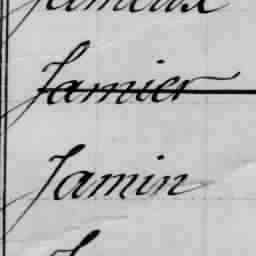 Jamier
Jamin